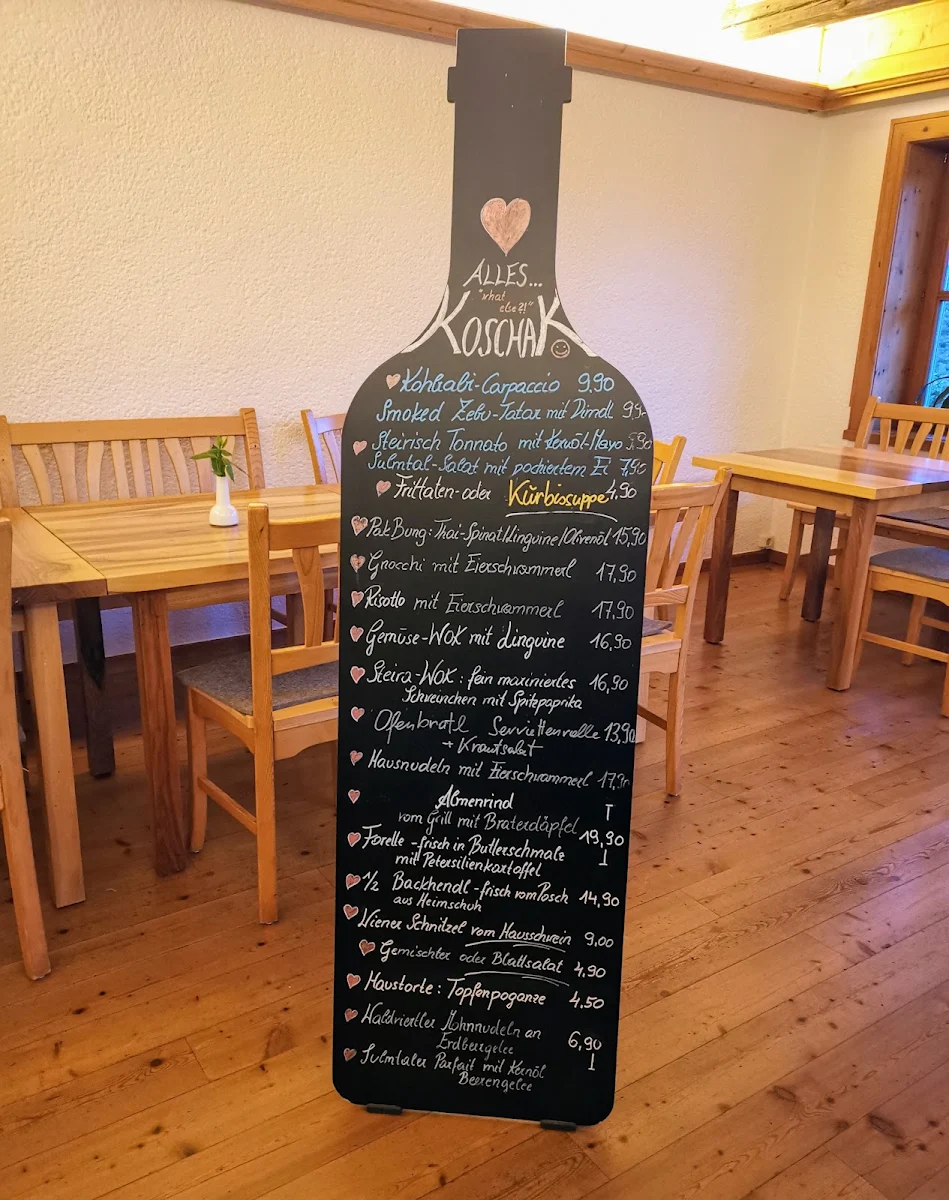 ALLES...
"what
else?!"
KOSCHAK
Kohlrabi-Carpaccio 9,90
Smoked Zebu-Tatar mit Dirndl 9,9
Steirisch Tonnato mit Kernöl-Mayo 9,90
Sulmtal-Salat mit pochiertem Ei 7,90
Frittaten- oder Kürbissuppe 4,90
Pak Bung: Thai-Spinat/Linguine/Olivenöl 15,90
Gnocchi mit Eierschwammerl 17,90
Risotto mit Eierschwammerl 17,90
Gemüse-WOK mit Linguine 16,90
Steira-WOK: fein mariniertes 16,90
Schweinchen mit Spitzpaprika
Ofenbratl Serviettenrolle 13,90
+ Krautsalat
Hausnudeln mit Eierschwammerl 17,90
Almenrind
vom Grill mit Braterdäpfel 19,90
Forelle - frisch in Butterschmalz
mit Petersilienkartoffel
1/2 Backhendl - frisch vom Posch 14,90
aus Heimschuh
Wiener Schnitzel vom Hausschwein 9,00
Gemischter oder Blattsalat 4,90
Haustorte: Topfenpoganze 4,50
Waldviertler Mohnnudeln an
Erdbeergelee 6,90
Sulmtaler Parfait mit Kernöl
Beerengelee